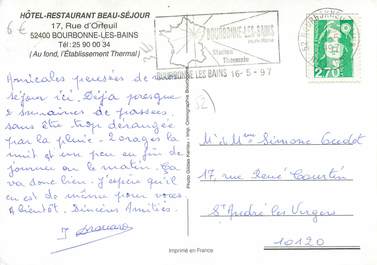 HÔTEL-RESTAURANT BEAU-SÉJOUR
17, Rue d'Orfeuil
52400 BOURBONNE-LES-BAINS
Tél : 25 90 00 34
(Au fond, l'Établissement Thermal)
6€
BOURBONNE-LES-BAINS
Station
Thermale
BOURBONNE LES BAINS 16-5-97
2,70
Amicales pensées de mon
séjour ici. Déjà presque
2 semaines de passées,
sans être trop dérangés
par la pluie. 2 orages la
nuit et un peu en fin de
journée ou le matin. Ça
va donc bien. J'espère qu'il
en est de même pour vous
A bientôt. Sincères Amitiés.
(52)
M. et Mme Simone
17, rue René Courtin
St André les Vergers
10120
Imprimé en France